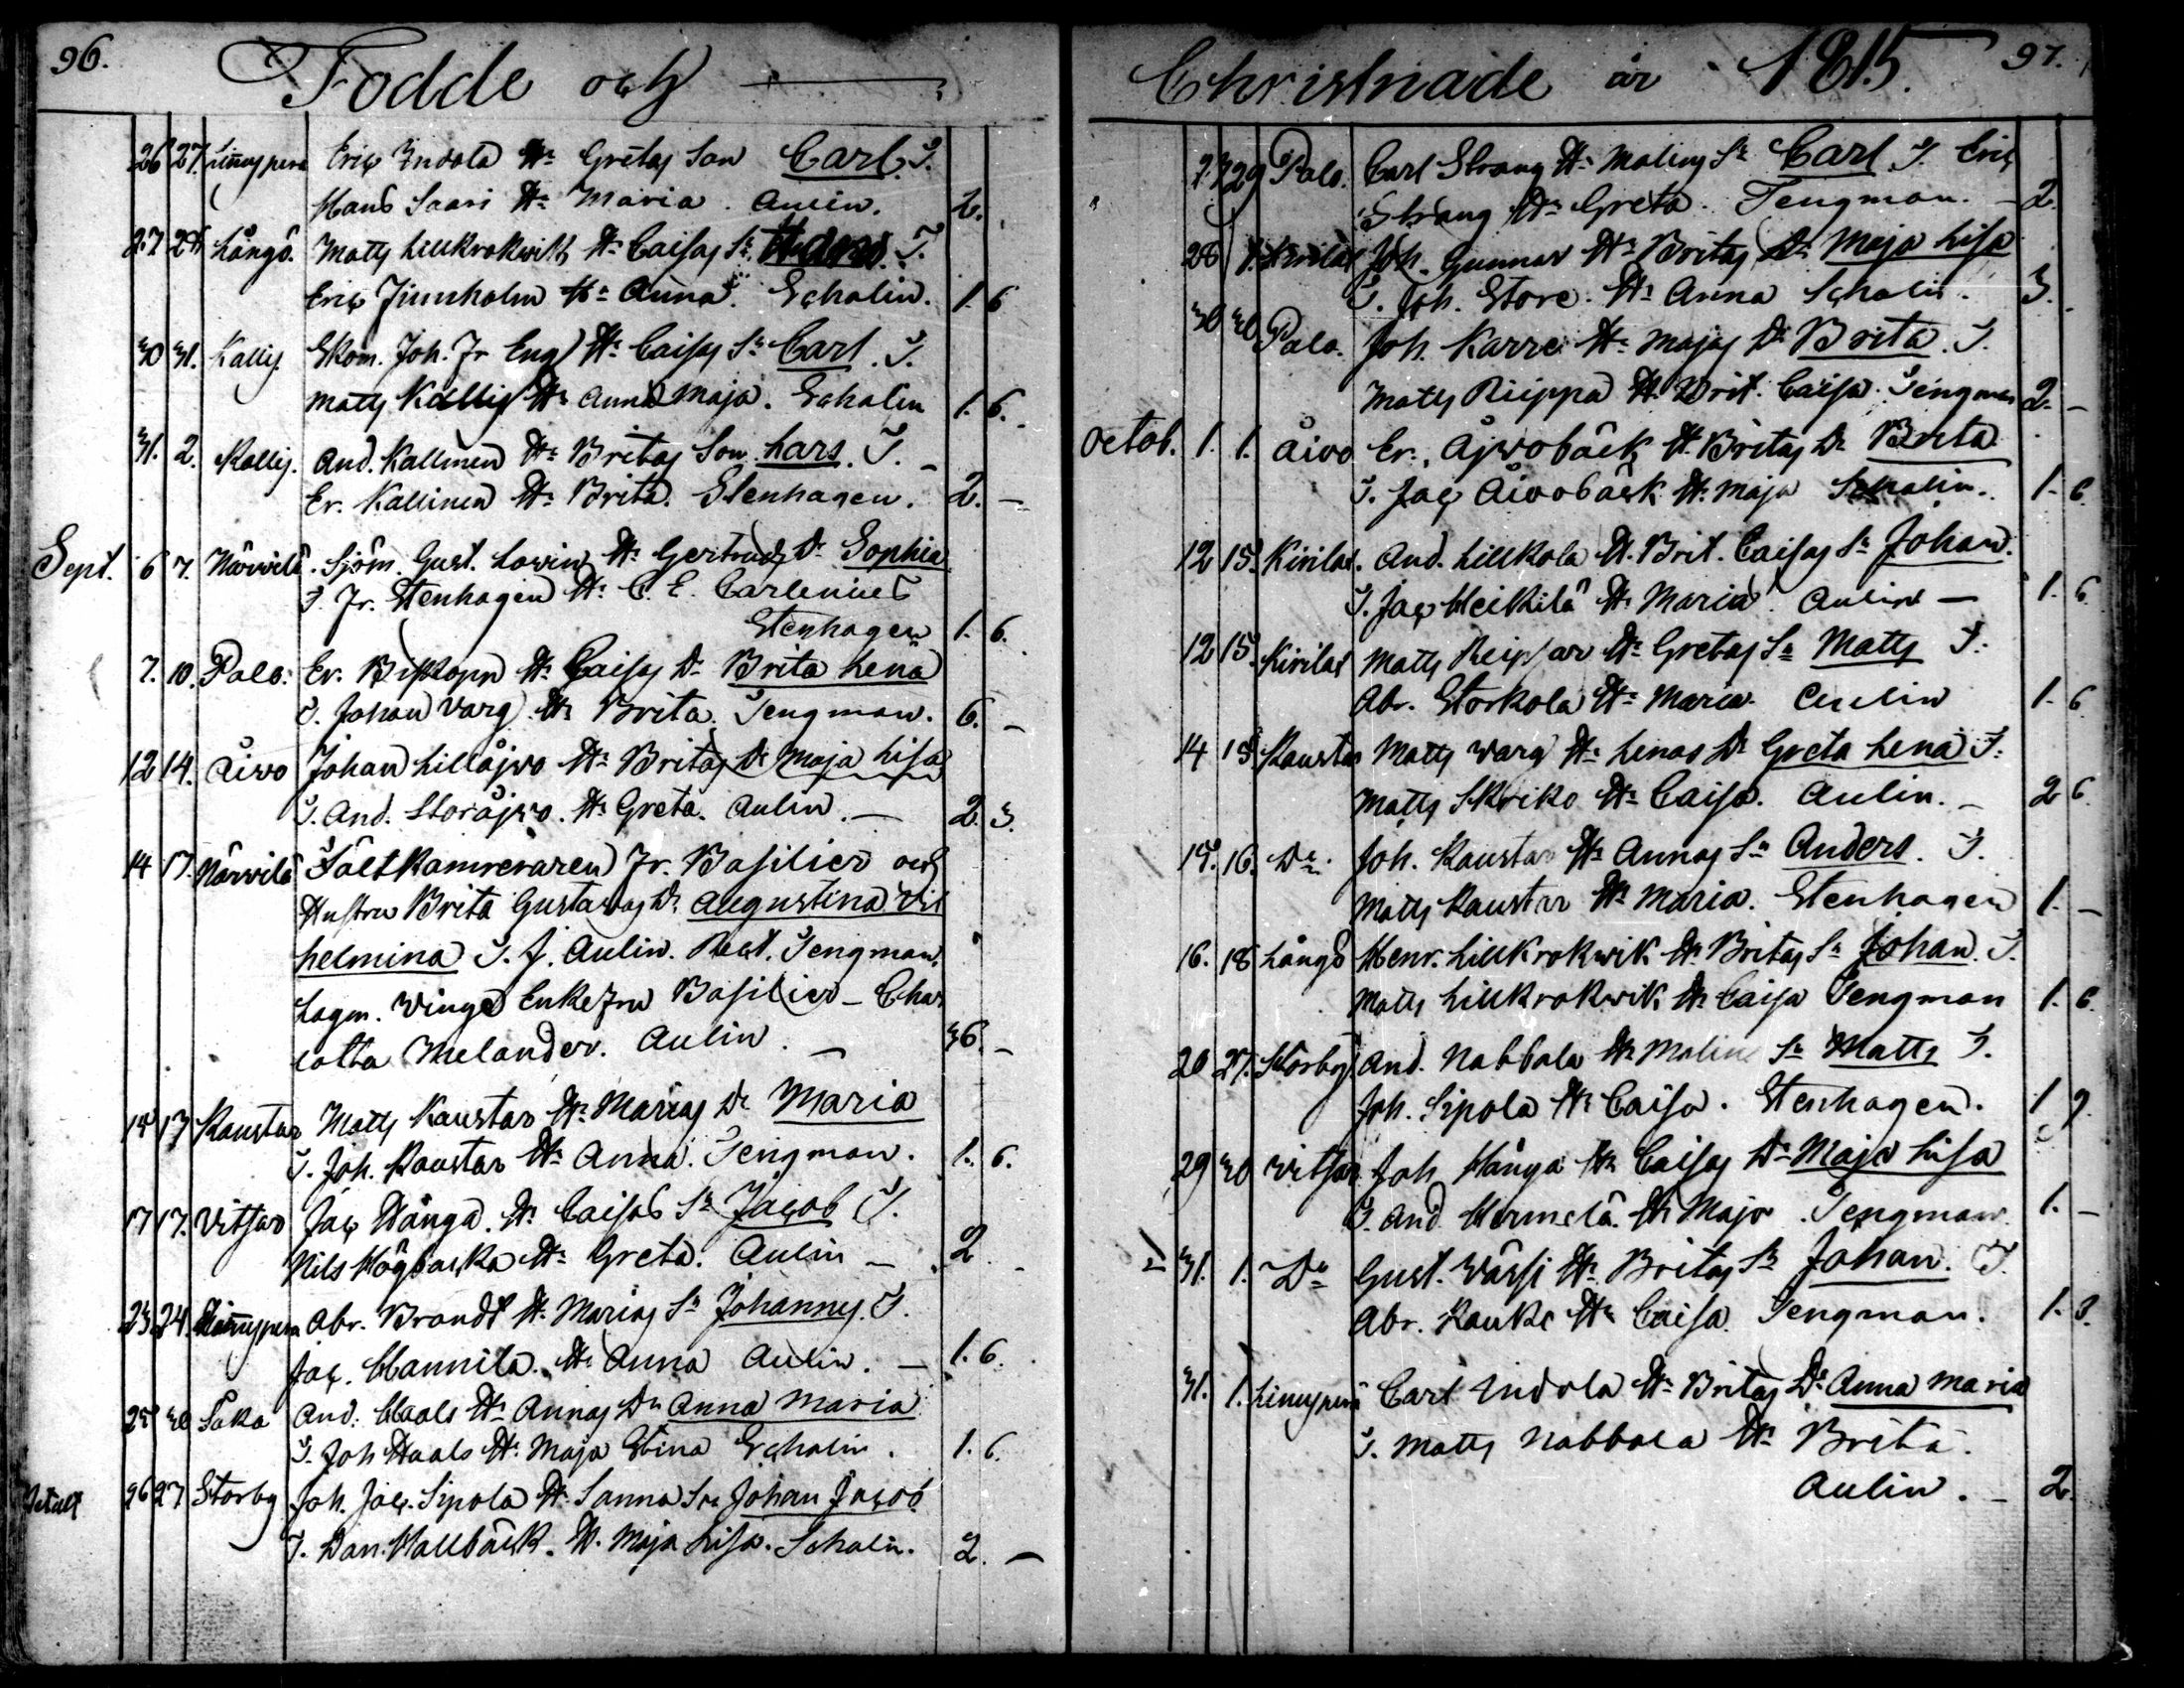 96.
Födde och
26 27. Linnuspera Eric Indola Hu Gretas Son Carl. T.
Hans Saari Hu Maria. Aulin. 2.
27 28 Långö. Matts Lillkrokwik Hu Caisas Sn T.
Eric Jiunholm Hu Anna. Schalin. 1. 6
30 31. Kallis Skom. Joh. Fr Eng Hu Caisas Sn Carl. T.
Matts Kallis Hu Anna Maja. Schalin 1. 6.
31. 2. Kallis. And. Kallinen Hu Britas Son Lars. T. –
Er. Kallinen Hu Brita. Stenhagen. 2. –
Sept. 6 7. Närvilä. Sjöm. Gust. Lovin Hu Gertruds Dr Sophia
T. Fr. Stenhagen Hu C. E. Carlenius
Stenhagen 1. 6.
7. 10. Palo. Er. Biskopp Hu Caisas Dr Brita Lena
T. Johan Varg. Hu Brita. Tengman. 6. –
12 14. Åivo Johan Lillåjvo Hu Britas Dr Maja Lisa
T. And. Storåjvo. Hu Greta. Aulin. – 2. 3.
14 17. Närvilä Fältkamreraren Fr. Basilier och
Hustru Brita Gustavas Dr Augustina Vil
helmina T. J. Aulin. Rect. Tengman.
Lagm. Vinge Enkefru Basilier – Char
lotta Melander. Aulin. – 36. –
15 17 Kaustar Matts Kaustar Hu Marias Dr Maria
T. Joh. Kaustar Hu Anna. Tengman. 1. 6.
17 17. Vitsar Jac Hånga. Hu Caisas Sn Jacob T.
Nils Högbacka Hu Greta. Aulin – 2. –
23. 24. Linnuspera Abr. Brandt H. Marias Sn Johannes. T.
Jac. Mannila. Hu Anna Aulin. – 1. 6.
25 30 Såka And. Haals Hu Annas Dr Anna Maria
T. Joh Haals Hu Maja Stina Schalin. 1. 6.
26 27 Storby Joh. Jac. Sipola Hu Sanna Son Johan Jacob
T. Dan. Hallbäck. H. Maja Lisa. Schalin. 2. –
Christnade år 1815. 97.
27 29 Palo. Carl Strang Hu Malins Sn Carl T. Eric
Strang Hu Greta. Tengman. – 2.
28 1. Kirilax Joh. Gunnar Hu Britas Dr Maja Lisa
T. Joh. Store. Hu Anna Schalin. 3.
30 30 Palo. Joh. Karre Hu Majas Dr Brita. T.
Matts Riippa Hu Brit. Caisa. Tengman 2. –
Octob. 1. 1. Åivo Er. Åjvobäck H. Britas Dr Brita
T. Jac Åivobäck H. Maja Schalin. 1. 6
12 15. Kirilax. And. Lillkola H. Brit. Caisas Sn Johan.
T. Jac Heikilä Hu Maria. Aulin – 1. 6.
12 15. Kirilax Matts Reipsar Hu Gretas Sn Matts T.
Abr. Storkola Hu Maria. Aulin 1. 6
14 15 Kaustar Matts Varg Hu Lenas Dr Greta Lena T.
Matts Skriko Hu Caisa. Aulin. – 2 6.
15. 16. Do. Joh. Kaustar Hu Annas Sn Anders. T.
Matts Kaustar Hu Maria. Stenhagen 1. –
16. 18 Långö Henr. Lillkrokwik Hu Britas Sn Johan. T.
Matts Lillkrokwik Hu Caisa Tengman 1. 6.
20 27. Storby. And. Nabbala Hu Malins Sn Matts T.
Joh. Sipola Hu Caisa. Stenhagen. 1 9.
29 30 Vitsar Joh. Hånga Hu Caisas Dr Maja Lisa
T. And. Hermelä. Hu Maja. Tengman. 1. –
31. 1. Do Gust. Värsi Hu Britas Sn Johan. T.
Abr. Kauke Hu Caisa. Tengman. 1. 3.
31. 1. Linnuspera Carl Indola Hu Britas Dr Anna Maria
T. Matts Nabbala Hu Brita.
Aulin. – 2.